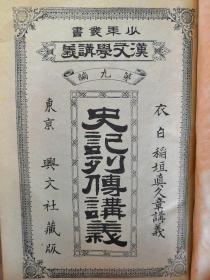 少年叢書
漢文學講義
第九編
衣白 稻垣眞久章講義
史記列傳講義
東京 興文社藏版